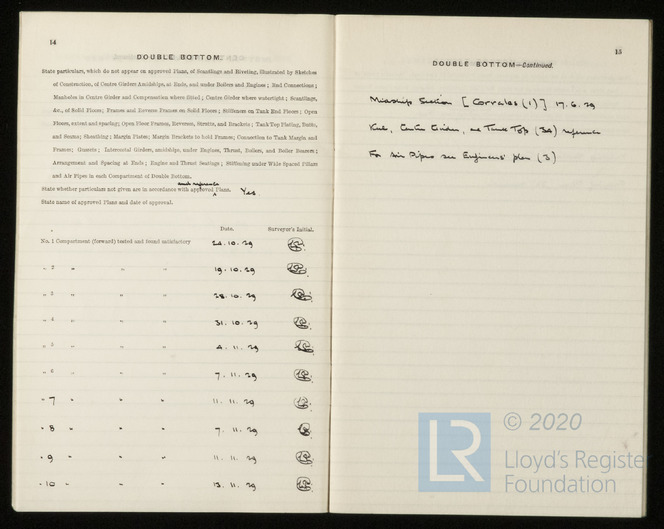 14
DOUBLE BOTTOM.
State particulars, which do not appear on approved Plans, of Scantlings and Riveting, illustrated by Sketches
of Construction, of Centre Girders Amidships, at Ends, and under Boilers and Engines; End Connections;
Manholes in Centre Girder and Compensation where fitted; Centre Girder where watertight; Scantlings,
&c., of Solid Floors; Frames and Reverse Frames on Solid Floors; Stiffeners on Tank End Floors; Open
Floors, extent and spacing; Open Floor Frames, Reverses, Struts, and Brackets; Tank Top Plating, Butts,
and Seams; Sheathing; Margin Plates; Margin Brackets to hold Frames; Connection to Tank Margin and
Frames; Gussets; Intercostal Girders, amidships, under Engines, Thrust, Boilers, and Boiler Bearers;
Arrangement and Spacing at Ends; Engine and Thrust Seatings; Stiffening under Wide Spaced Pillars
and Air Pipes in each Compartment of Double Bottom.
and reference
State whether particulars not given are in accordance with approved Plans. Yes
State name of approved Plans and date of approval.
Date. Surveyor's Initial.
No. 1 Compartment (forward) tested and found satisfactory 24.10.29
„ 2 „ „ „ 19.10.29
„ 3 „ „ „ 28.10.29
„ 4 „ „ „ 31.10.29
„ 5 „ „ „ 4.11.29
„ 6 „ „ „ 7.11.29
„ 7 „ „ „ 11.11.29
„ 8 „ „ „ 7.11.29
„ 9 „ „ „ 11.11.29
„ 10 „ „ „ 13.11.29
15
DOUBLE BOTTOM—Continued.
Midship Section [Corrales (1)] 17.6.29
Keel, Centre Girder, and Tank Top (34) reference
For Air Pipes see Engineers' plan (3)
LR
© 2020
Lloyd's Register
Foundation